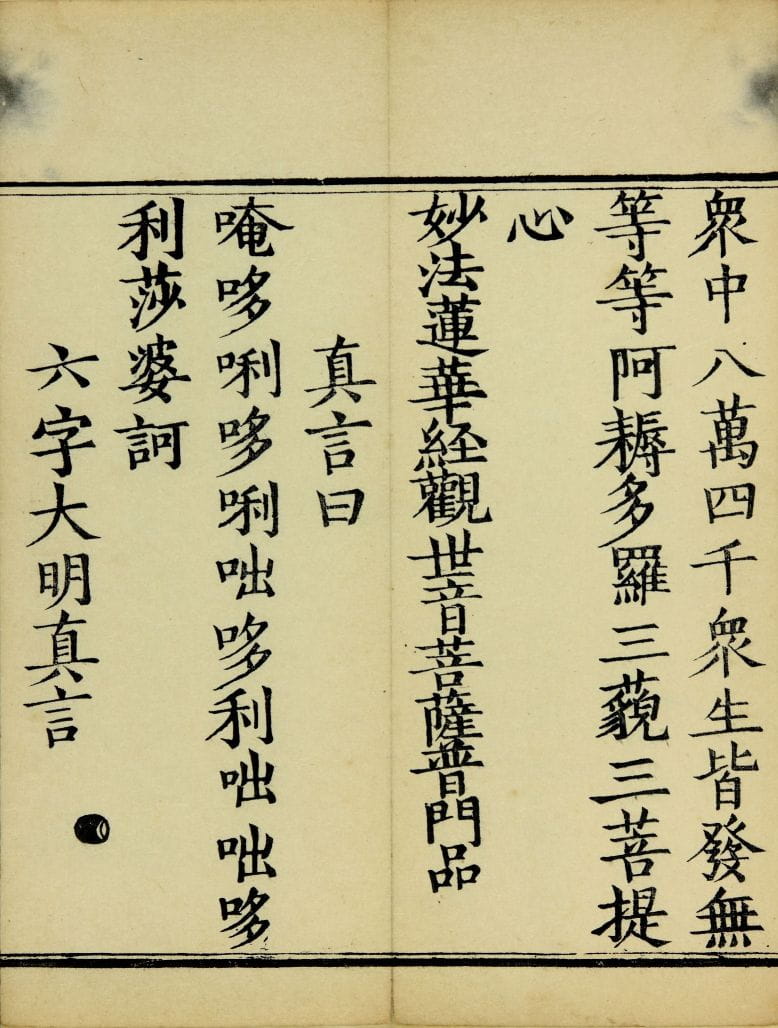 衆中八萬四千衆生皆發無
等等阿耨多羅三藐三菩提
心
妙法蓮華經觀世音菩薩普門品
真言曰
唵哆唎哆唎咄哆利咄咄哆
利莎婆訶
六字大明真言